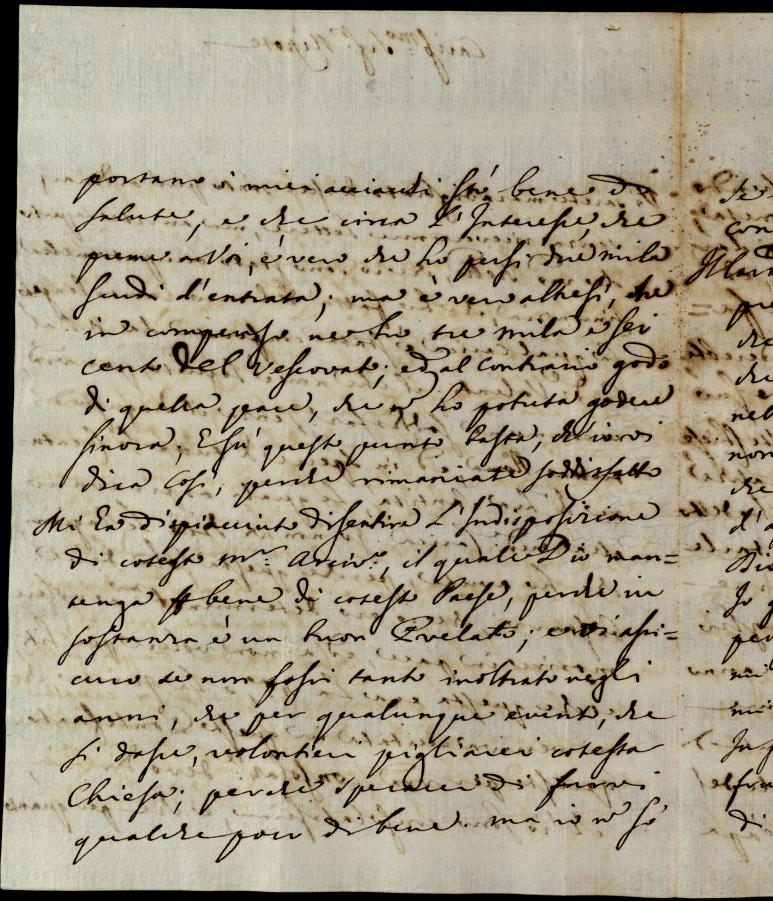 portano i miei acciacchi, stò bene di
salute, e che circa l'Interesse, che
preme a Voi, è vero che ho persi due mila
scudi d'entrata; ma è vero altresì, che
in compenso ne ho tre mila e sei
cento del Vescovato; ed al contrario godo
di quella pace, che nò ho potuta godere
sinora, E sù questo punto basta, ch'io vi
dica così, perche rimaniate soddisfatto
Mi ha dispiaciuto di sentire l'Indisposizione
di cotesto Mr. Arciv.o, il quale Dio man=
tenga p bene di cotesto Paese, perche in
sostanza è un buon Prelato; e vi assi=
curo se non fossi tanto inoltrato negli
anni, che per qualunque evento, che
si dasse, volontieri pigliarei cotesta
Chiesa; perche sperarei di farvi
qualche poco di bene ma io nò sò
di
con
pre
che
che
nel
non
che
d'a
Dio
Io
per
mi
mi
di